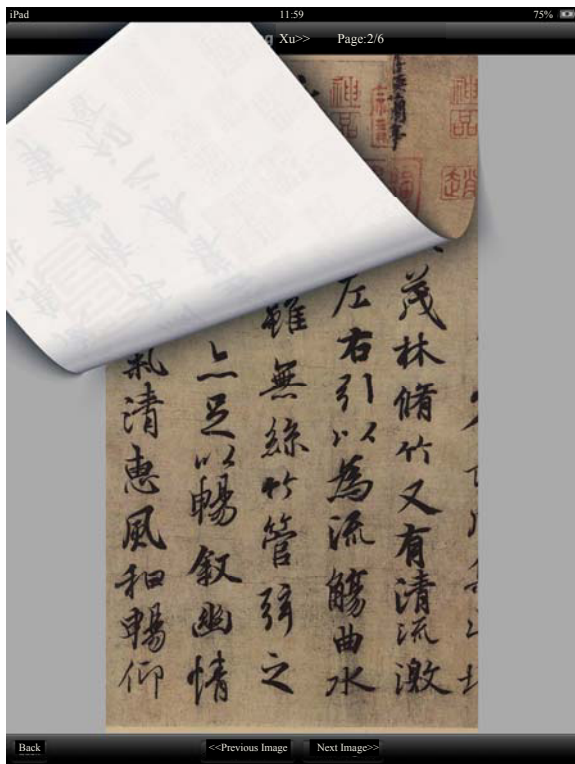 iPad 11:59 75%
Xu>> Page:2/6
神品
茂林脩竹又有清流激
左右引以為流觴曲水
雖無絲竹管弦之
亦足以暢叙幽情
氣清惠風和暢仰
Back <<Previous Image Next Image>>